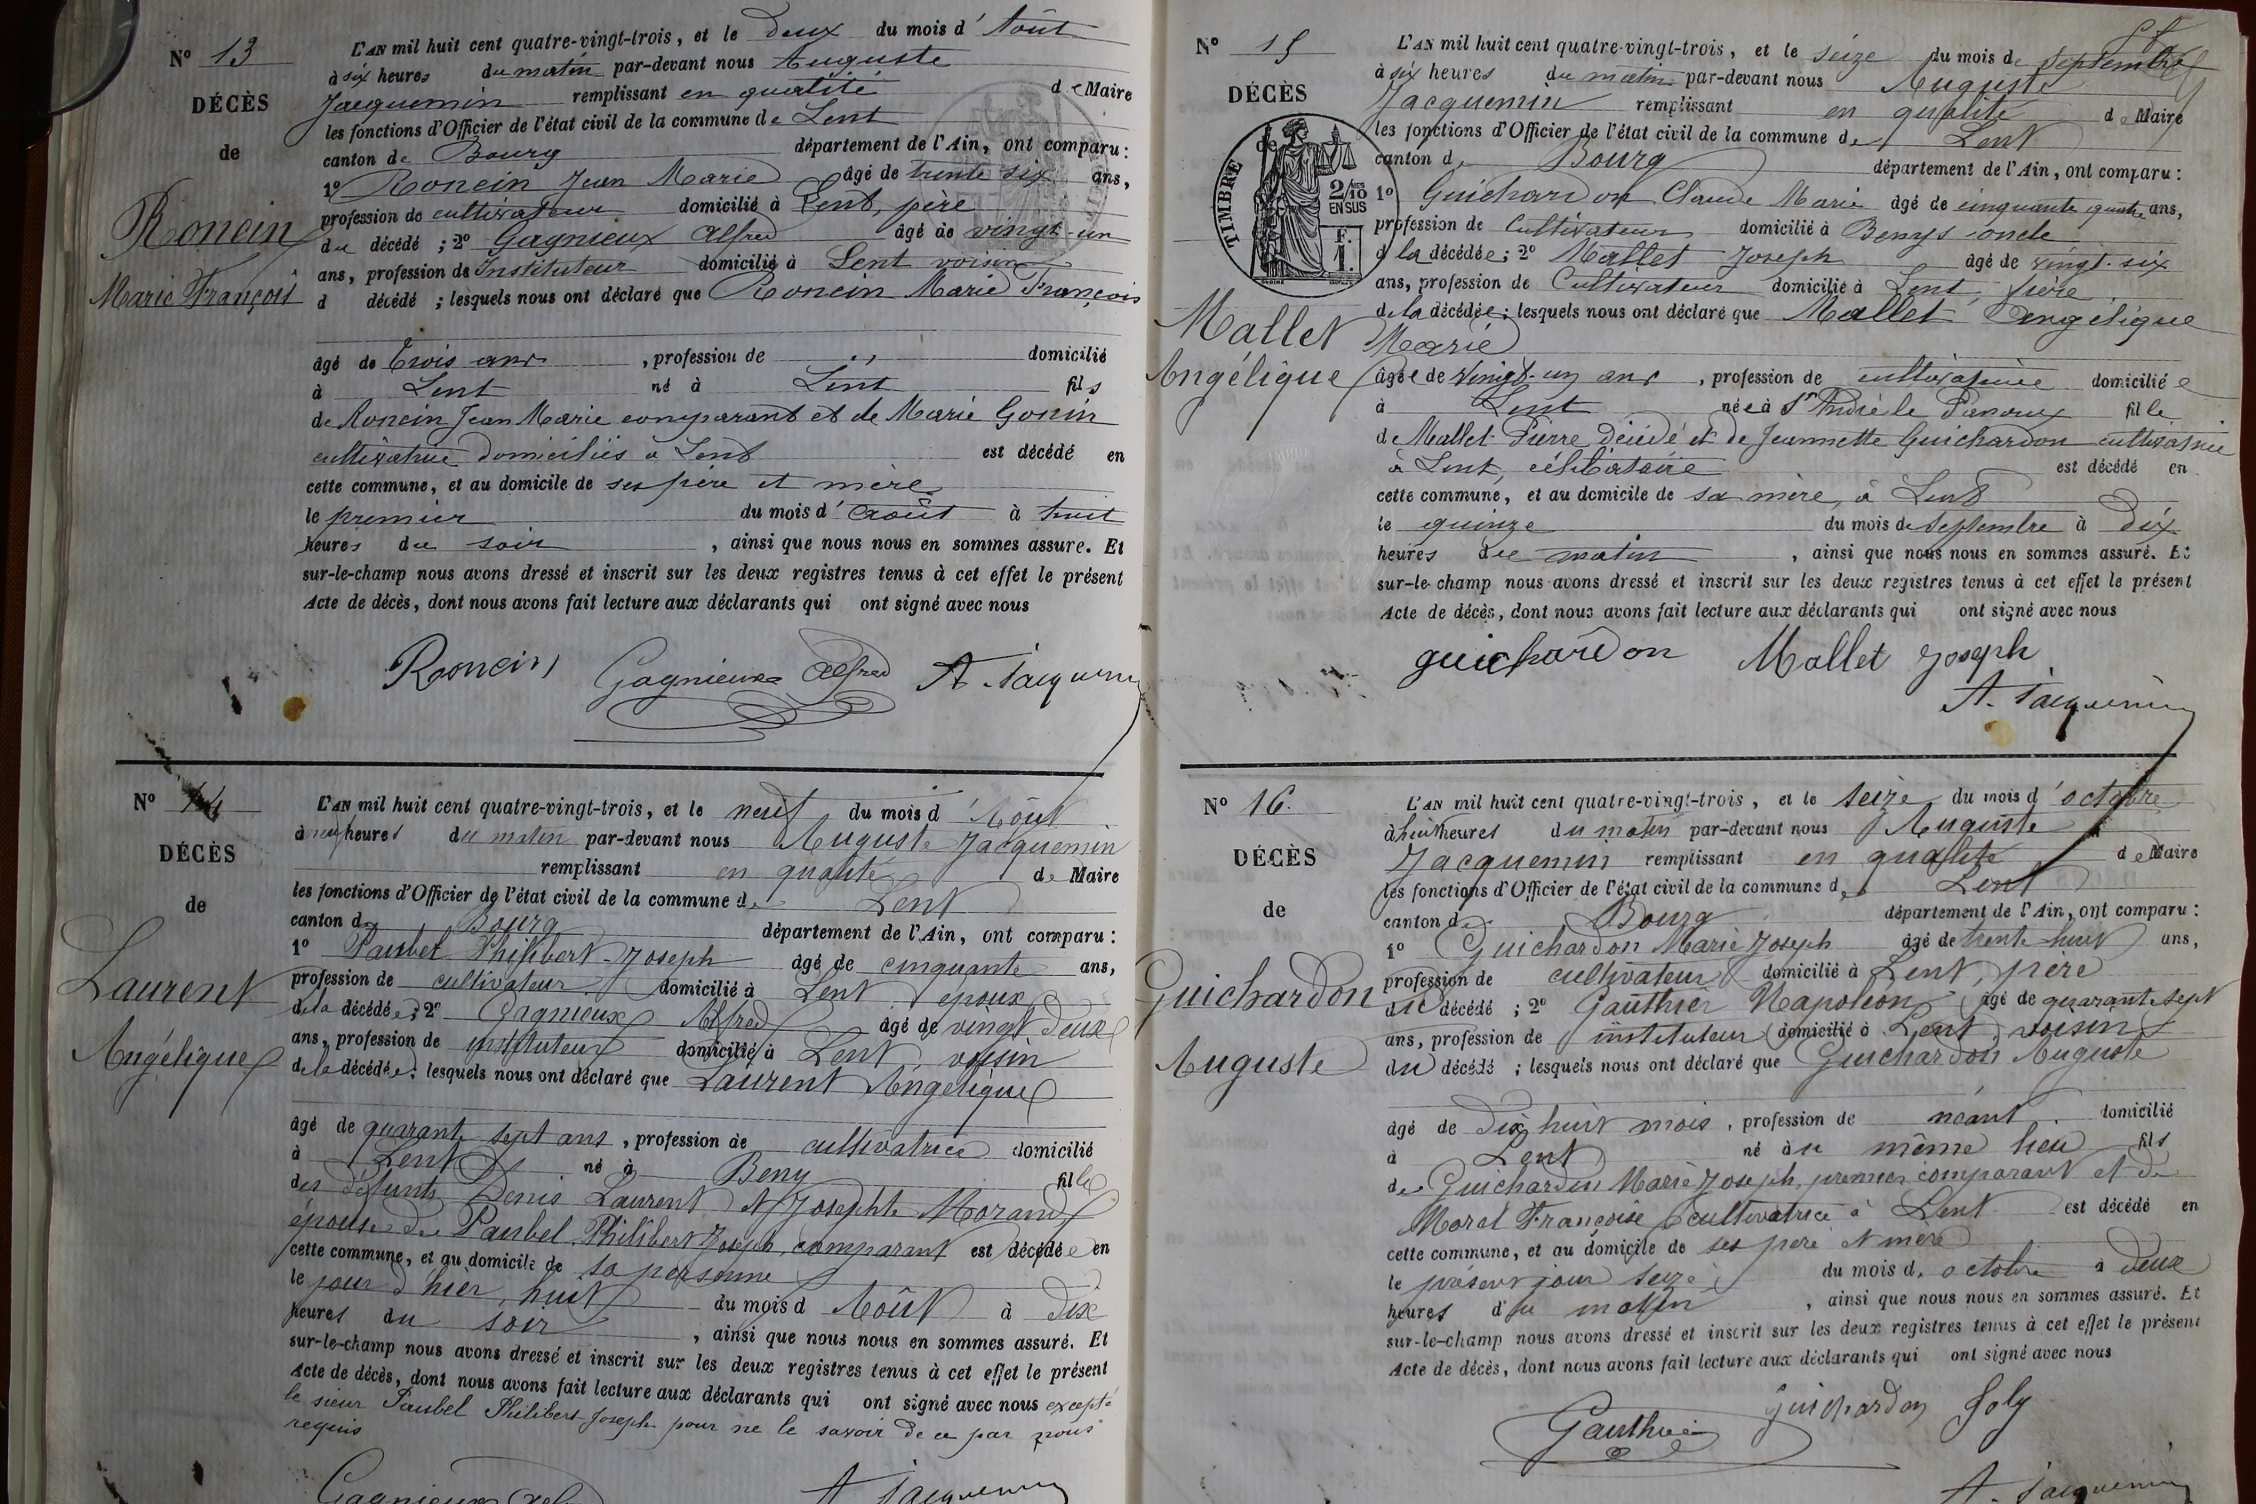 N° 13
DÉCÈS
de
Roncin
Marie François
L'AN mil huit cent quatre-vingt-trois, et le deux du mois d'Août
à six heures du matin par-devant nous Auguste
Jacquemin remplissant en qualité de Maire
les fonctions d'Officier de l'état civil de la commune de Lent
canton de Bourg département de l'Ain, ont comparu :
1° Roncin Jean Marie âgé de trente six ans,
profession de cultivateur domicilié à Lent, père
du décédé ; 2° Gagnieux Alfred âgé de vingt-un
ans, profession de Instituteur domicilié à Lent voisin
d décédé ; lesquels nous ont déclaré que Roncin Marie François
âgé de Trois ans, profession de domicilié
à Lent né à Lent fils
de Roncin Jean Marie comparant et de Marie Gonin
cultivatrice domiciliés à Lent est décédé en
cette commune, et au domicile de ses père et mère
le premier du mois d'Août à huit
heures du soir, ainsi que nous nous en sommes assuré. Et
sur-le-champ nous avons dressé et inscrit sur les deux registres tenus à cet effet le présent
Acte de décès, dont nous avons fait lecture aux déclarants qui ont signé avec nous
Roncin Gagnieux Alfred A. Jacquemin
N° 14
DÉCÈS
de
Laurent
Angélique
L'AN mil huit cent quatre-vingt-trois, et le neuf du mois d'Août
à neuf heures du matin par-devant nous Auguste Jacquemin
remplissant en qualité de Maire
les fonctions d'Officier de l'état civil de la commune de Lent
canton de Bourg département de l'Ain, ont comparu :
1° Paubel Philibert-Joseph âgé de cinquante ans,
profession de cultivateur domicilié à Lent époux
de la décédée ; 2° Gagnieux Alfred âgé de vingt deux
ans, profession de instituteur domicilié à Lent voisin
de la décédée ; lesquels nous ont déclaré que Laurent Angélique
âgé de quarante sept ans, profession de cultivatrice domicilié
à Lent né à Beny fille
des défunts Denis Laurent et Josephte Morand
épouse de Paubel Philibert Joseph, comparant est décédée en
cette commune, et au domicile de sa personne
le jour d'hier, huit du mois d Août à dix
heures du soir, ainsi que nous nous en sommes assuré. Et
sur-le-champ nous avons dressé et inscrit sur les deux registres tenus à cet effet le présent
Acte de décès, dont nous avons fait lecture aux déclarants qui ont signé avec nous excepté
le sieur Paubel Philibert-Joseph pour ne le savoir de ce par nous
requis
Gagnieux Alf A Jacquemin
N° 15
DÉCÈS
de
TIMBRE
2/10 EN SUS
F. 1.
Mallet
Angélique
L'AN mil huit cent quatre-vingt-trois, et le seize du mois de septembre
à six heures du matin par-devant nous Auguste
Jacquemin remplissant en qualité de Maire
les fonctions d'Officier de l'état civil de la commune de Lent
canton de Bourg département de l'Ain, ont comparu :
1° Guichardon Claude Marie âgé de cinquante quatre ans,
profession de Cultivateur domicilié à Beny, oncle
d la décédée ; 2° Mallet Joseph âgé de vingt-six
ans, profession de Cultivateur domicilié à Lent, frère
de la décédée ; lesquels nous ont déclaré que Mallet Angélique
Marie
âgée de vingt-un ans, profession de cultivatrice domiciliée
à Lent née à St André le Panoux fille
de Mallet Pierre décédé et de Jeannette Guichardon cultivatrice
à Lent, célibataire est décédé en
cette commune, et au domicile de sa mère, à Lent
le quinze du mois de septembre à dix
heures du matin, ainsi que nous nous en sommes assuré. Et
sur-le-champ nous avons dressé et inscrit sur les deux registres tenus à cet effet le présent
Acte de décès, dont nous avons fait lecture aux déclarants qui ont signé avec nous
guichardon Mallet Joseph
A. Jacquemin
N° 16.
DÉCÈS
de
Guichardon
Auguste
L'AN mil huit cent quatre-vingt-trois, et le seize du mois d'octobre
à huit heures du matin par-devant nous Auguste
Jacquemin remplissant en qualité de Maire
les fonctions d'Officier de l'état civil de la commune de Lent
canton de Bourg département de l'Ain, ont comparu :
1° Guichardon Marie Joseph âgé de trente-huit ans,
profession de cultivateur domicilié à Lent, père
du décédé ; 2° Gauthier Napoléon âgé de quarante sept
ans, profession de instituteur domicilié à Lent voisin
du décédé ; lesquels nous ont déclaré que Guichardon Auguste
âgé de dix huit mois, profession de néant domicilié
à Lent né au même lieu fils
de Guichardon Marie Joseph, premier comparant et de
Morel Françoise cultivatrice à Lent est décédé en
cette commune, et au domicile de ses père et mère
le présent jour seize du mois d. octobre à deux
heures du matin, ainsi que nous nous en sommes assuré. Et
sur-le-champ nous avons dressé et inscrit sur les deux registres tenus à cet effet le présent
Acte de décès, dont nous avons fait lecture aux déclarants qui ont signé avec nous
Gauthier Guichardon Joly
A. Jacquemin